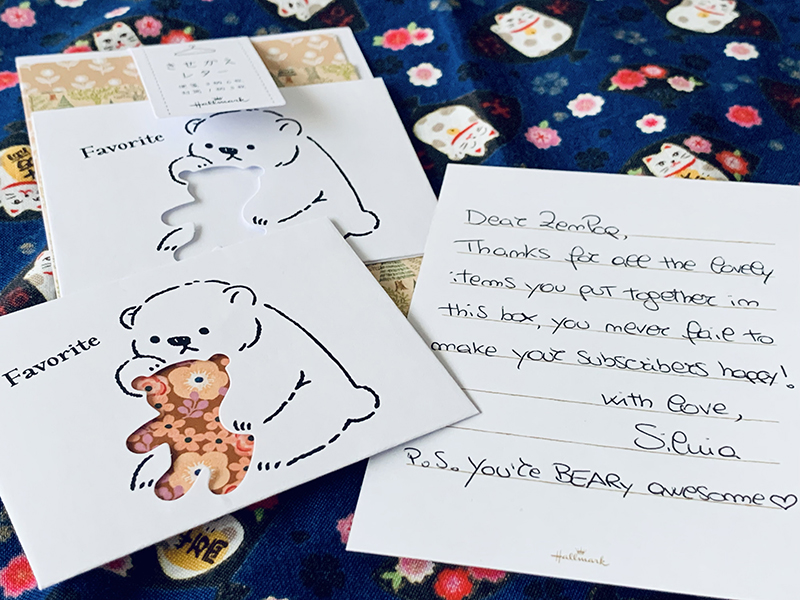 きせかえ
レター
Hallmark
Favorite
Favorite
Dear ZenPop,
Thanks for all the lovely
items you put together in
this box, you never fail to
make your subscribers happy!
with love,
Silvia
P.S. You're BEARy awesome♡
Hallmark